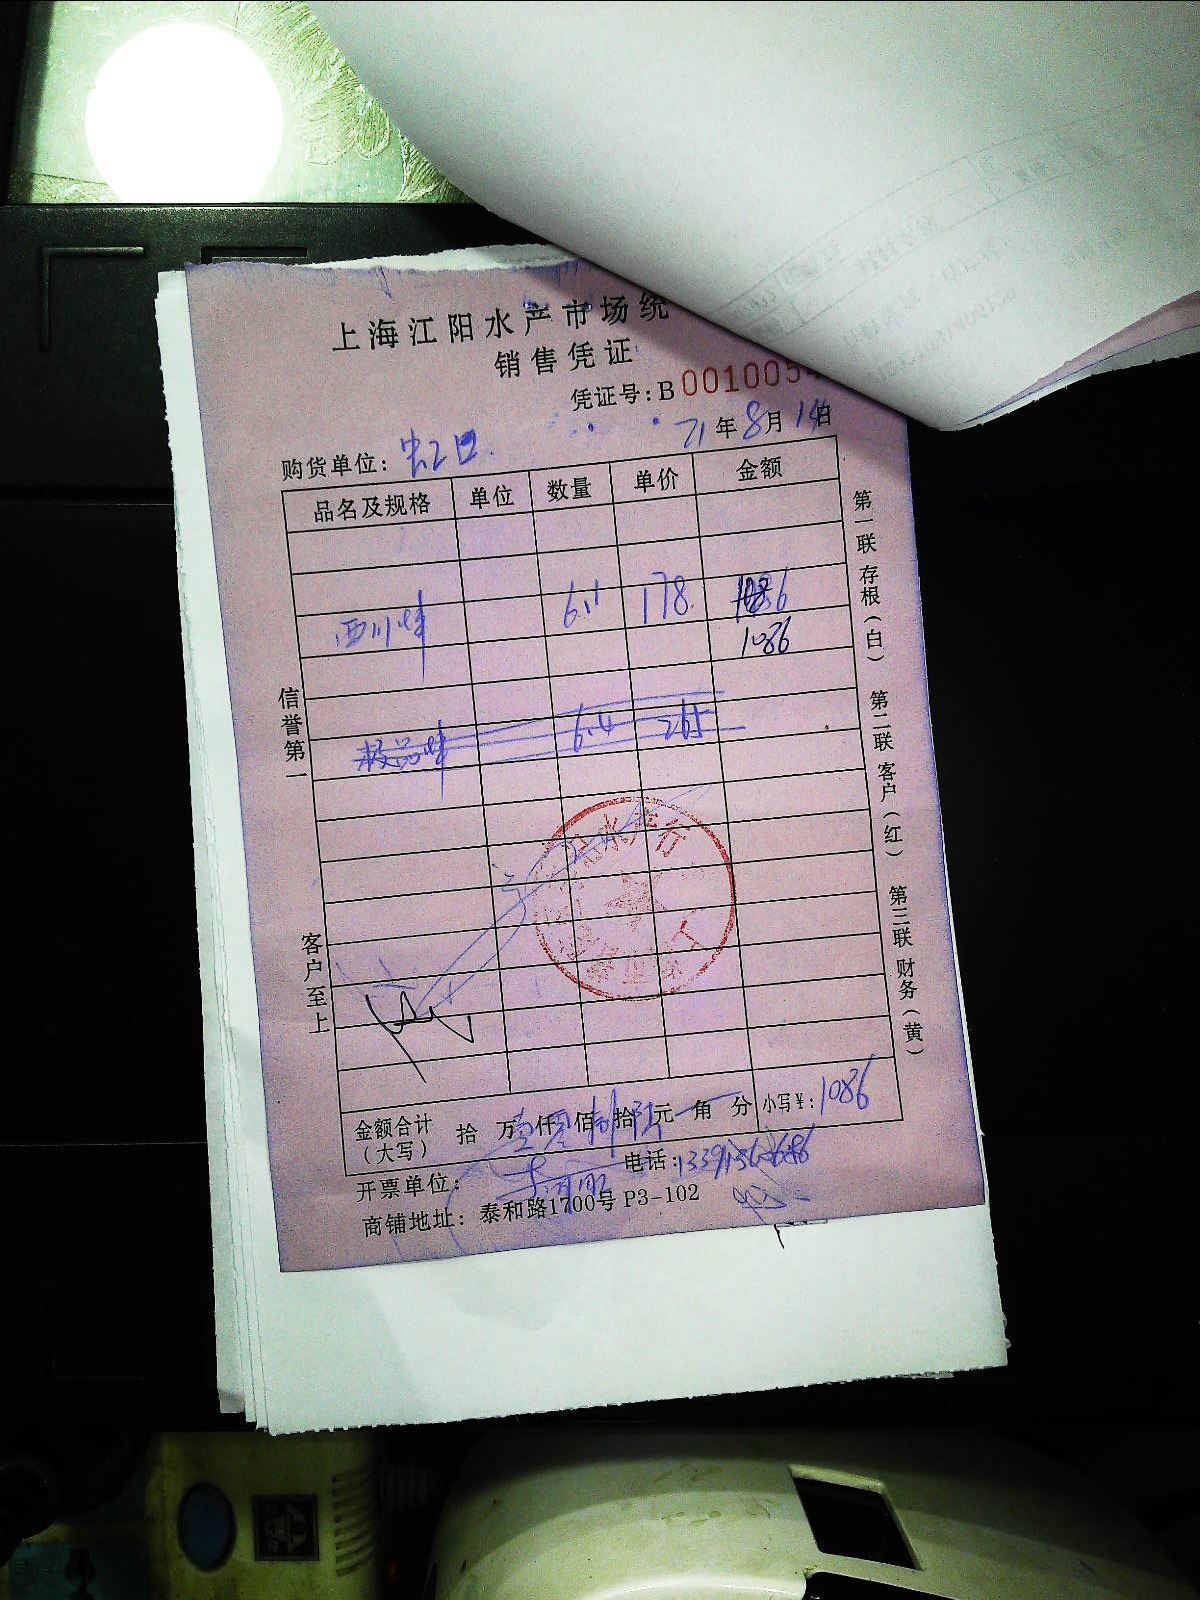 上海江阳水产市场统
销售凭证
凭证号:B 001005
21年8月14日
购货单位: 虹口
品名及规格 单位 数量 单价 金额
6.1 178 1086
1086
极品 6.4 265
信誉第一
客户至上
第一联 存根(白) 第二联 客户(红) 第三联 财务(黄)
水产行
金额合计(大写) 拾 万 仟 佰 拾 元 角 分 小写¥: 1086
开票单位: 电话:
商铺地址: 泰和路1700号 P3-102